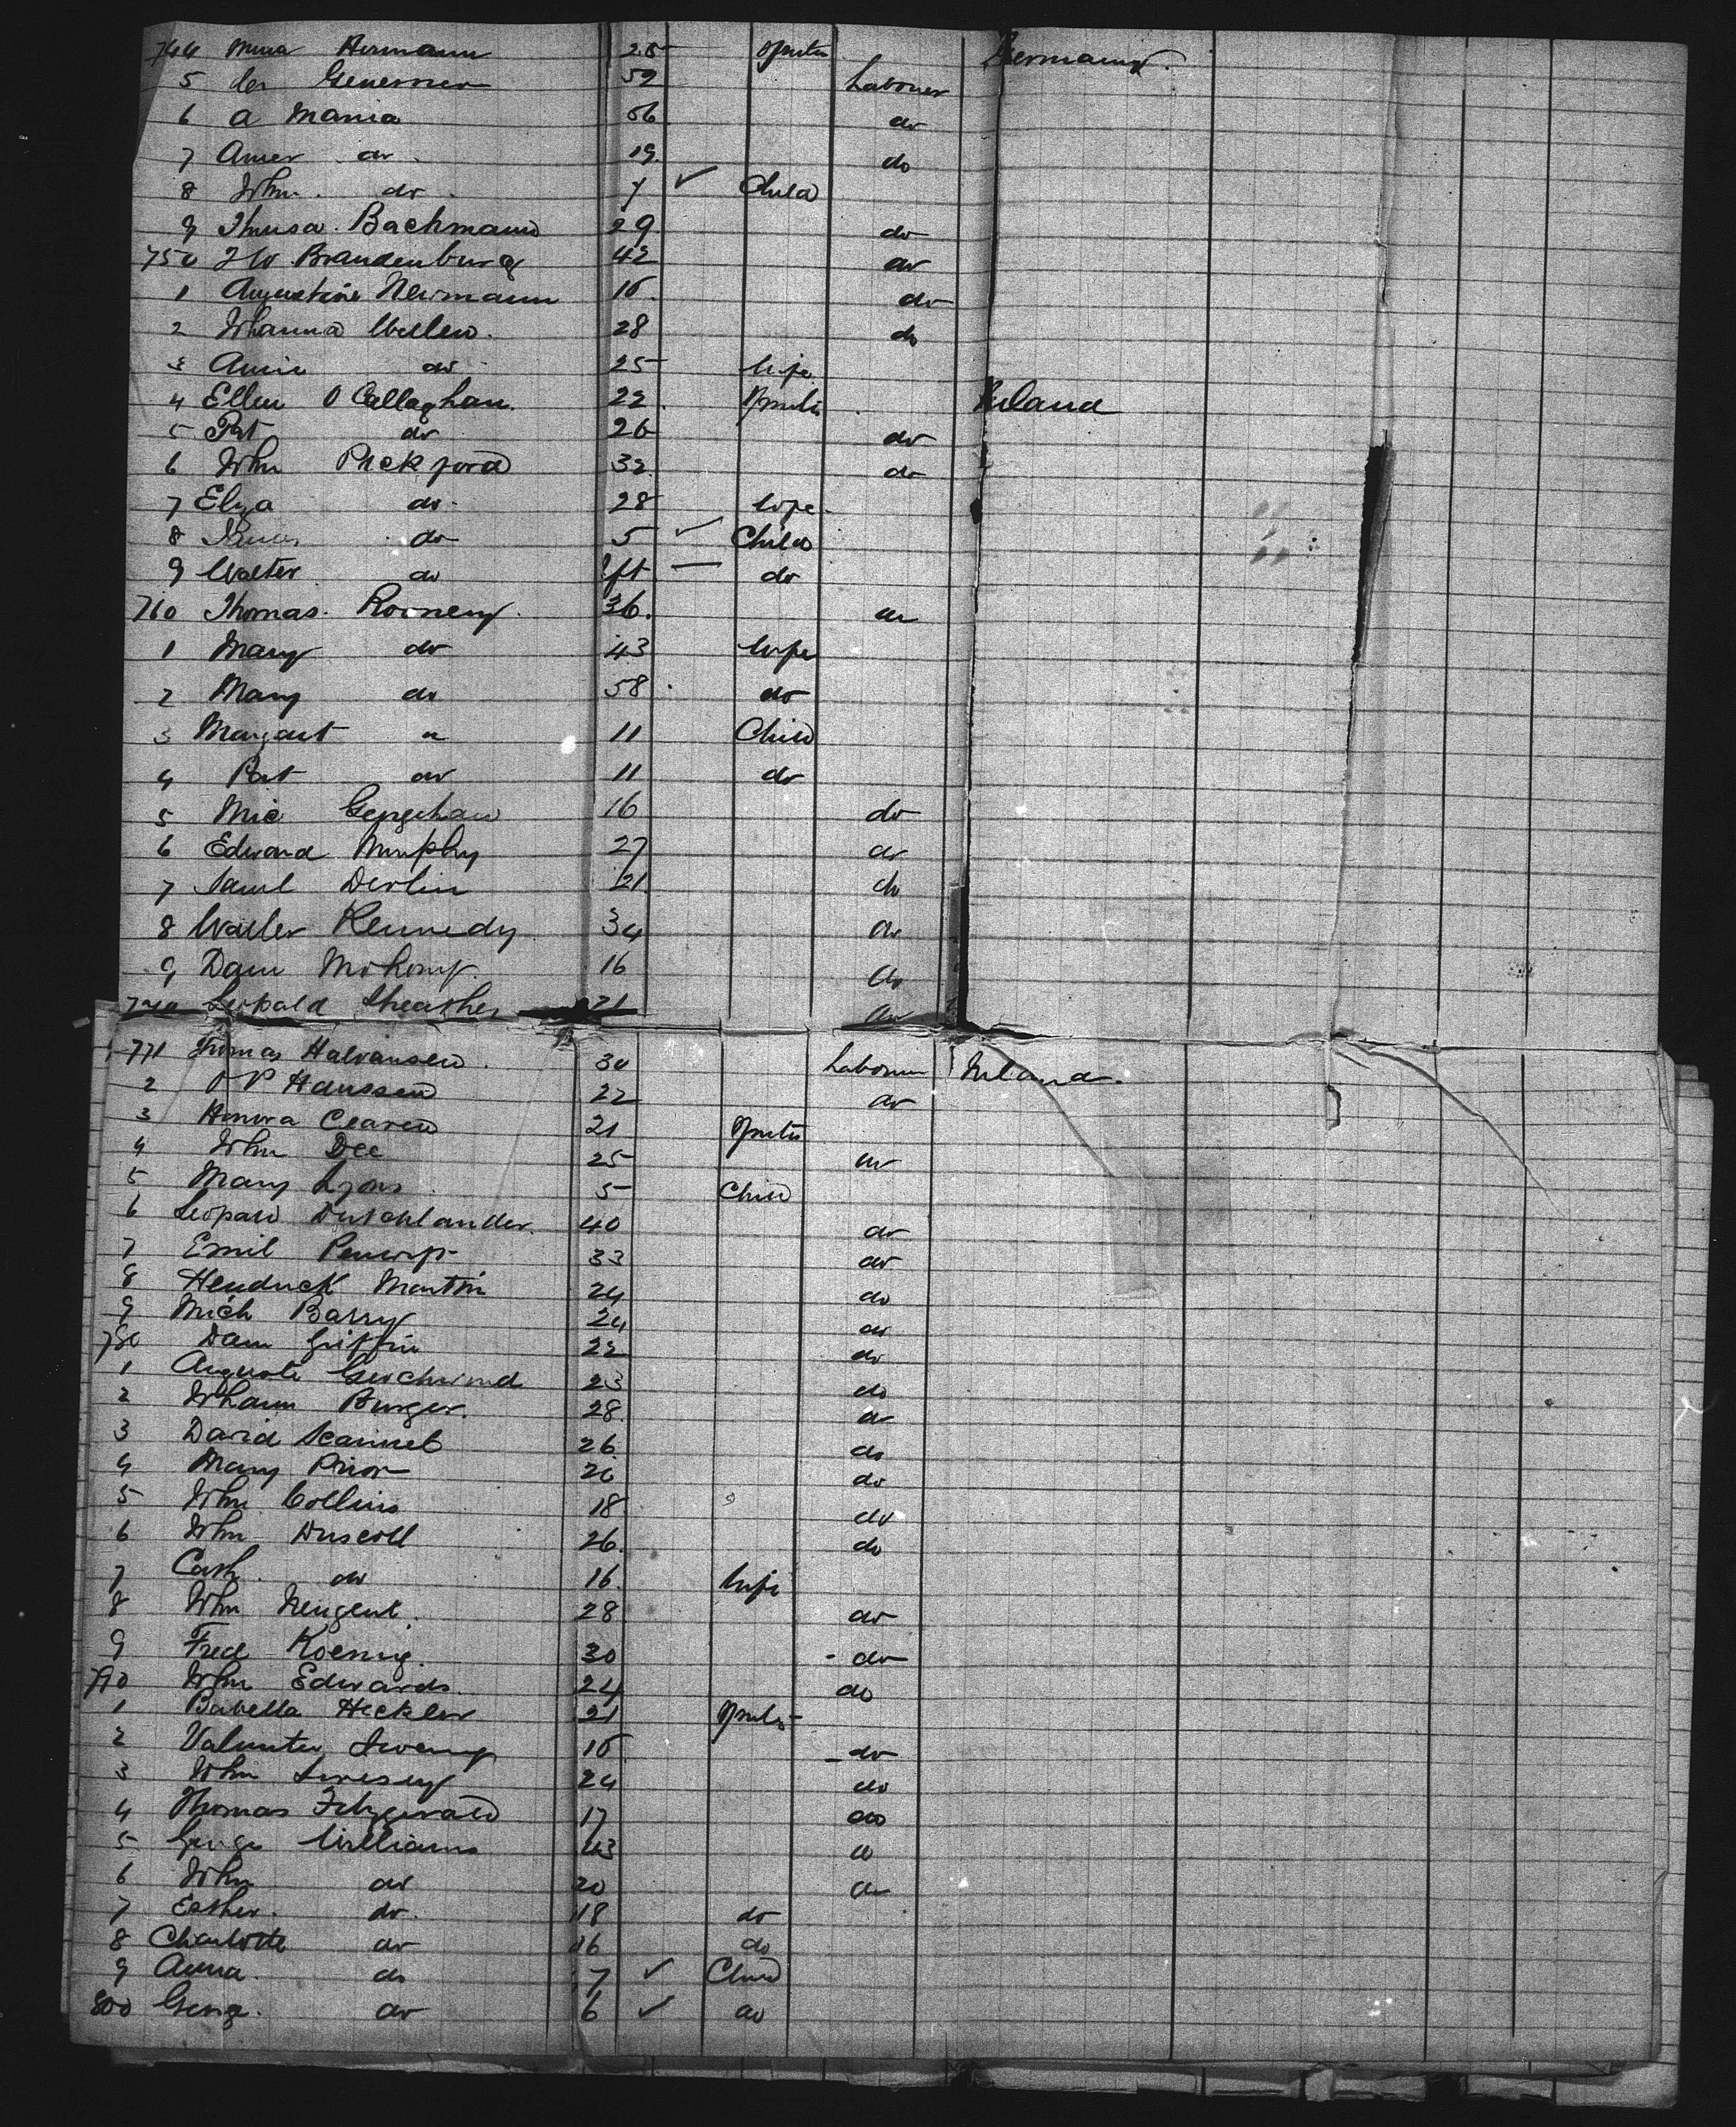 744 Hermann 25 Spinster Germany.
5 59 Laborer
6 A Maria 56 do
7 do 19 do
8 John do 7 ✓ Child
9 Bachmann 29 do
750 Brandenburg 42 do
1 Augustine Newmann 18 do
2 Johanna 28 do
3 Annie do 25 Wife
4 Ellen O Callaghan. 22 Spinster Ireland
5 Pat do 26 do
6 John Pickford 32 do
7 Eliza do 28 Wife
8 James do 5 ✓ Child
9 Walter do Inft — do
760 Thomas Rooney 36. do
1 Mary do 43 Wife
2 Mary do 58 do
3 Margaret do 11 Child
4 Pat do 11 do
5 Mic 16 do
6 Edward Murphy 27 do
7 Saml Devlin 21 do
8 Walter Kennedy 34 do
9 Danl 16 do
770 Leopald 21 do
771 Halvansen 30 Laborer Ireland.
2 Hanssen 22 do
3 Honora 21 Spinster
4 John Dee 25 do
5 Mary Lyons 5 Child
6 Leopald Dutchlander 40 do
7 Emil 33 do
8 Hendrick Martin 24 do
9 Mich Barry 24 do
780 Danl Griffin 22 do
1 Auguste Geschwind 23 do
2 Johann Burger. 28 do
3 David Scannel 26 do
4 Mary Prior do
5 John Collins 18 do
6 John Driscoll 26 do
7 Cath. do 16 Wife
8 John Neugent 28 do
9 Fred Koenig. 30 do
790 John Edwards 24 do
1 Babella Heckler 21 Spinster
2 18 do
3 John Livesey 24 do
4 Thomas Fitzgerald 17 do
5 George Williams 43 do
6 John do 20 do
7 Esther. do 18 do
8 Charlotte do 16 do
9 Anna. do 7 ✓ Child
800 George. do 6 ✓ do